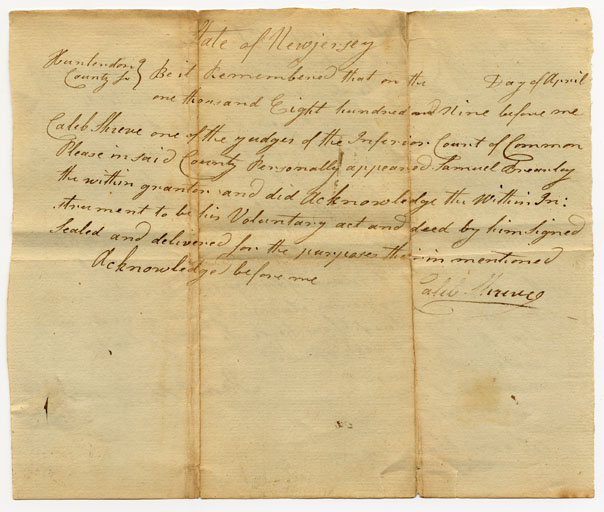 State of Newjersey
Hunterdon
County Ss } Be it Remembered that on the Day of April
one thousand Eight hundred and Nine before me
Caleb Shreve one of the Judges of the Inferior Court of Common
Please in said County Personally appeared Samuel
the within grantor and did Acknowledge the Within In:
strument to be his Voluntary act and deed by him Signed
Sealed and delivered for the purposes therein mentioned
Acknowledged before me
Caleb Shreve